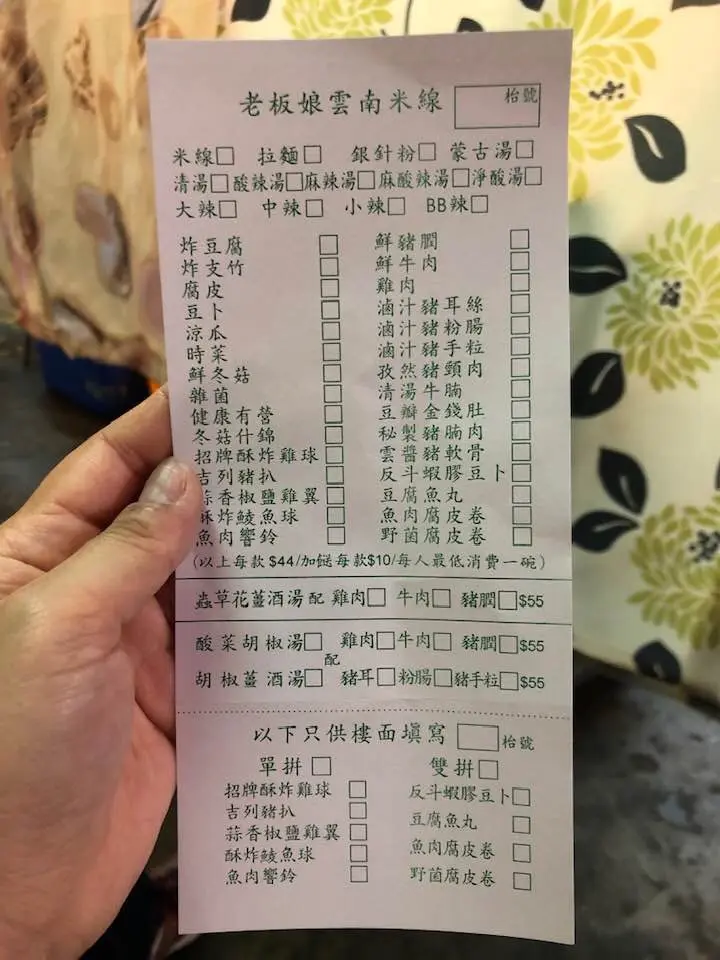 老板娘雲南米線 枱號
米線□ 拉麵□ 銀針粉□ 蒙古湯□
清湯□ 酸辣湯□ 麻辣湯□ 麻酸辣湯□ 淨酸湯□
大辣□ 中辣□ 小辣□ BB辣□
炸豆腐 □ 鮮豬膶 □
炸支竹 □ 鮮牛肉 □
腐皮 □ 雞肉 □
豆卜 □ 滷汁豬耳絲 □
涼瓜 □ 滷汁豬粉腸 □
時菜 □ 滷汁豬手粒 □
鮮冬菇 □ 孜然豬頸肉 □
雜菌 □ 清湯牛腩 □
健康有營 □ 豆瓣金錢肚 □
冬菇什錦 □ 秘製豬腩肉 □
招牌酥炸雞球 □ 雲醬豬軟骨 □
吉列豬扒 □ 反斗蝦膠豆卜 □
蒜香椒鹽雞翼 □ 豆腐魚丸 □
酥炸鯪魚球 □ 魚肉腐皮卷 □
魚肉響鈴 □ 野菌腐皮卷 □
(以上每款 $44/加餸每款$10/每人最低消費一碗)
蟲草花薑酒湯 配 雞肉□ 牛肉□ 豬膶□ $55
酸菜胡椒湯□ 雞肉□ 牛肉□ 豬膶□ $55
配
胡椒薑酒湯□ 豬耳□ 粉腸□ 豬手粒□ $55
以下只供樓面填寫 □ 枱號
單拼□ 雙拼□
招牌酥炸雞球 □ 反斗蝦膠豆卜□
吉列豬扒 □ 豆腐魚丸 □
蒜香椒鹽雞翼 □ 魚肉腐皮卷 □
酥炸鯪魚球 □ 野菌腐皮卷 □
魚肉響鈴 □